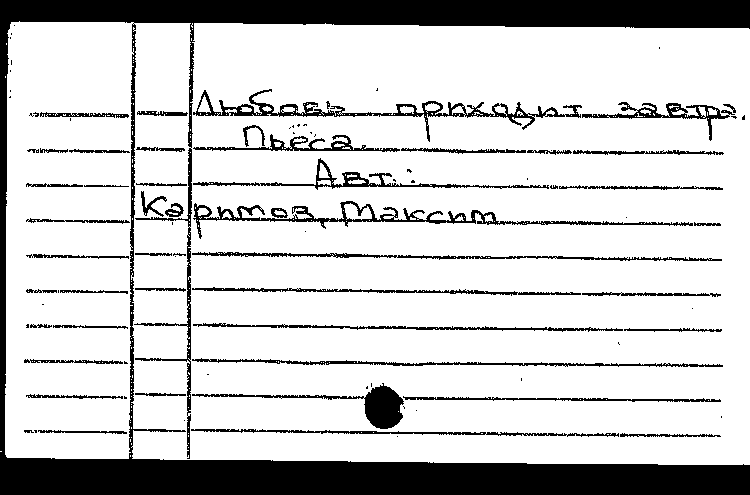 Любовь приходит завтра.
Пьеса.
Авт.:
Каримов, Максим